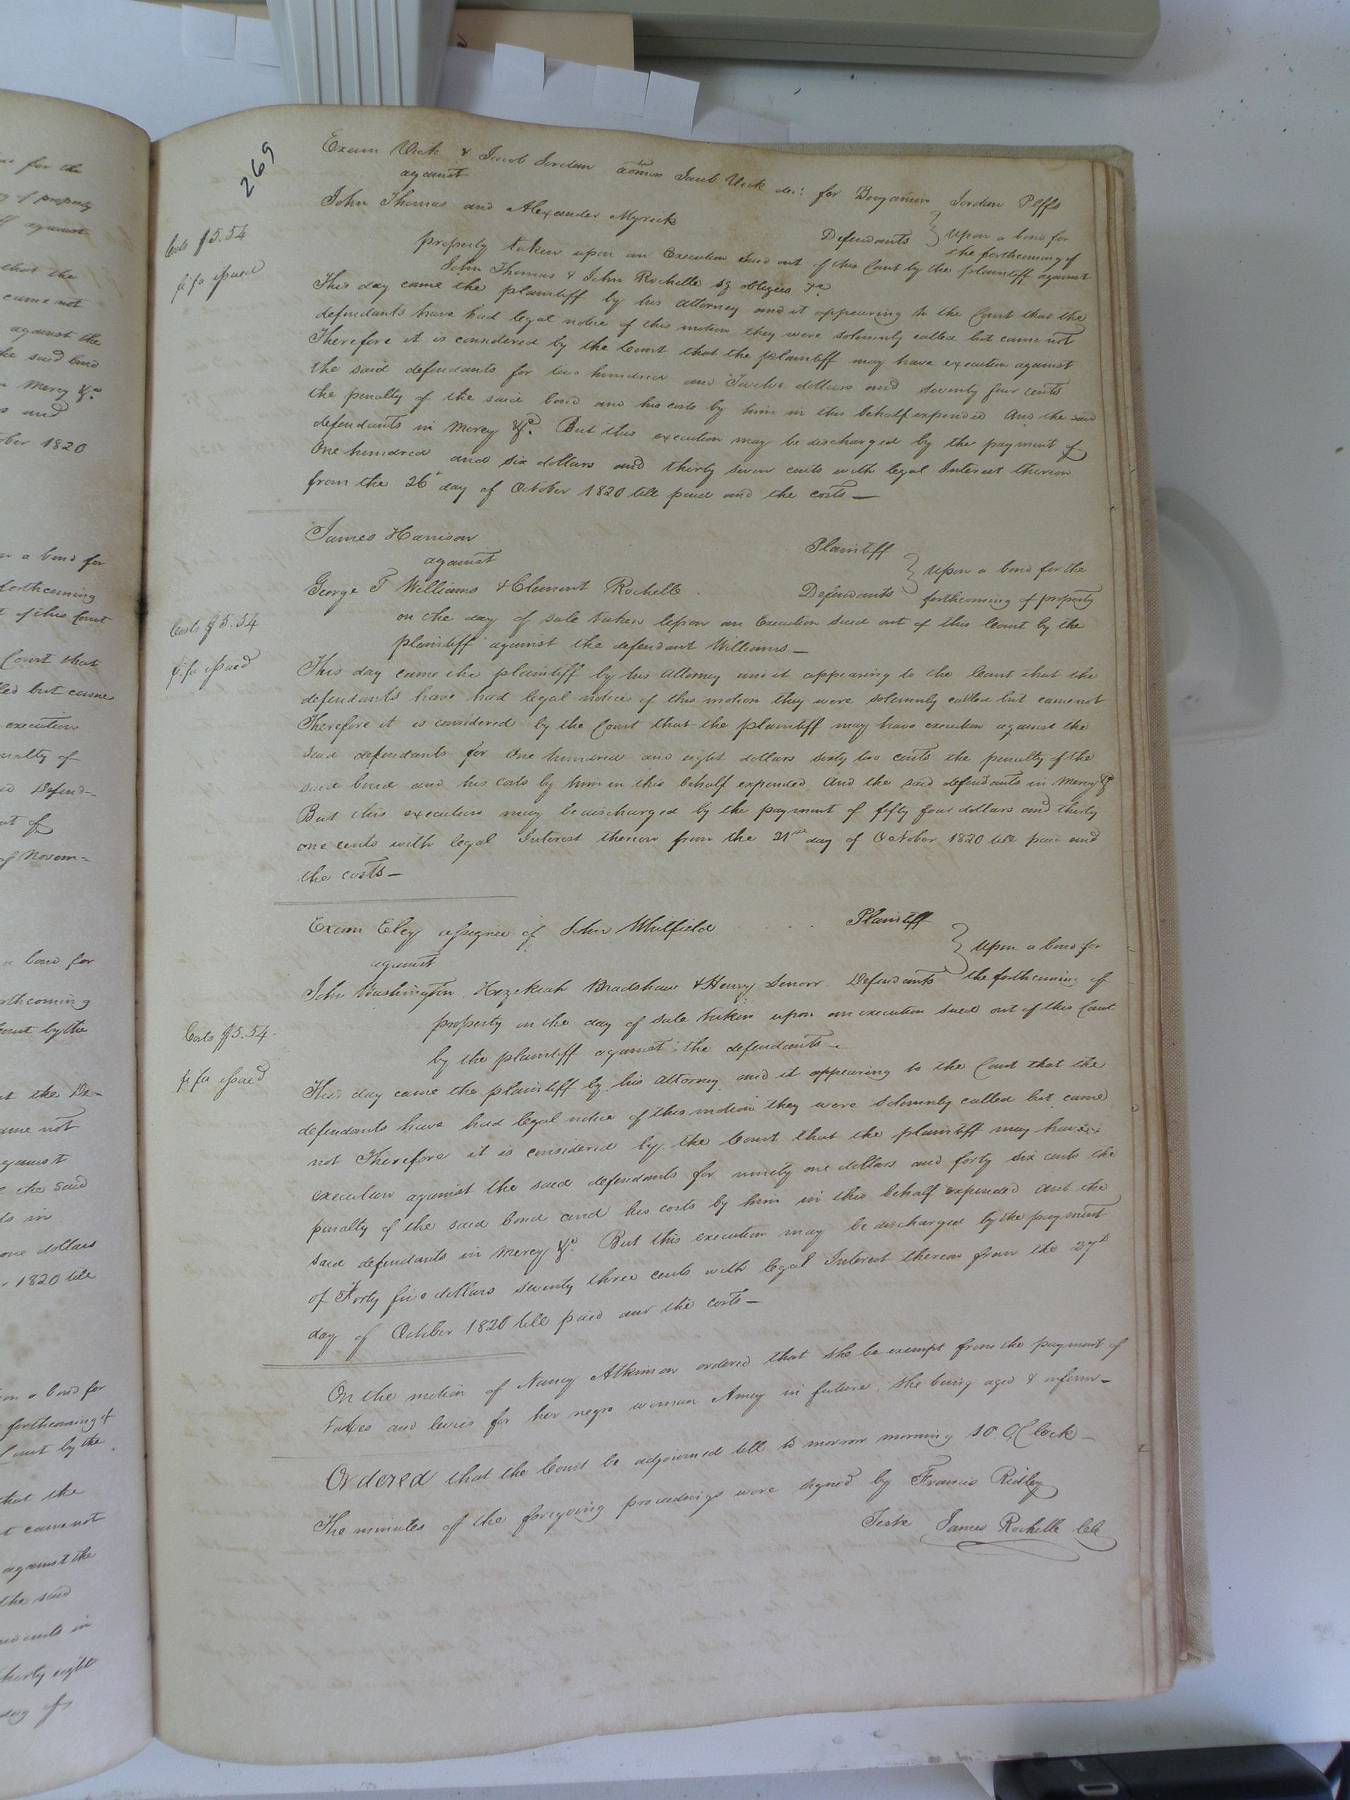 269
Exum Vick & Jacob Jordan admors Jacob Vick dec: for Benjamin Jordan Plffs
against
John Thomas and Alexander Myrick Defendants
Upon a bond for
the forthcoming of
property taken upon an Execution sued out of this Court by the plaintiff against
John Thomas & John Rochelle sq obligees &c
Costs $5.54
fi fa issued
This day came the plaintiff by his attorney and it appearing to the Court that the
defendants have had legal notice of this motion they were solemnly called but came not
Therefore it is considered by the Court that the plaintiff may have execution against
the said defendants for two hundred and Twelve dollars and seventy four cents
the penalty of the said bond and his costs by him in this behalf expended And the said
defendants in Mercy &c. But this execution may be discharged by the payment of
One hundred and six dollars and thirty seven cents with legal Interest thereon
from the 26 day of October 1820 till paid and the costs—
James Harrison Plaintiff
against
George T Williams & Clement Rochelle Defendants
Upon a bond for the
forthcoming of property
on the day of sale taken upon an Execution sued out of this Court by the
plaintiff against the defendant Williams—
Costs $5.54
fi fa issued
This day came the plaintiff by his attorney and it appearing to the Court that the
defendants have had legal notice of this motion they were solemnly called but came not
Therefore it is considered by the Court that the plaintiff may have execution against the
said defendants for One hundred and eight dollars sixty two cents the penalty of the
said bond and his costs by him in this behalf expended And the said defendants in Mercy &c
But this execution may be discharged by the payment of fifty four dollars and thirty
one cents with legal Interest thereon from the 31st day of October 1820 till paid and
the costs—
Exum Eley assignee of John Whitfield Plaintiff
against
John Washington, Hezekiah Bradshaw & Henry Defendants
Upon a bond for
the forthcoming of
property on the day of sale taken upon an execution sued out of this Court
by the plaintiff against the defendants—
Costs $5.54
fi fa issued
This day came the plaintiff by his attorney and it appearing to the Court that the
defendants have had legal notice of this motion they were solemnly called but came
not Therefore it is considered by the Court that the plaintiff may have
execution against the said defendants for ninety one dollars and forty six cents the
penalty of the said bond and his costs by him in this behalf expended and the
said defendants in Mercy &c. But this execution may be discharged by the payment
of Forty five dollars seventy three cents with legal Interest thereon from the 27th
day of October 1820 till paid and the costs—
On the motion of Nancy Atkinson ordered that she be exempt from the payment of
taxes and levies for her negro woman Amey in future, she being aged & infirm—
Ordered that the Court be adjourned till to morrow morning 10 OClock—
The minutes of the foregoing proceedings were signed by Francis Ridley
Teste James Rochelle Clk